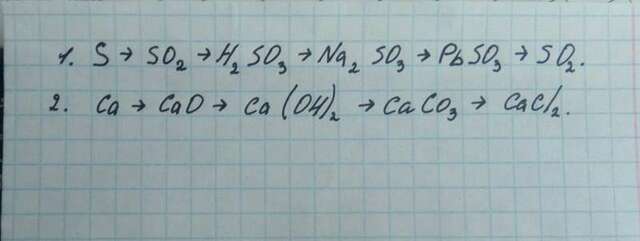 1. S → SO₂ → H₂SO₃ → Na₂SO₃ → PbSO₃ → SO₂.
2. Ca → CaO → Ca(OH)₂ → CaCO₃ → CaCl₂.